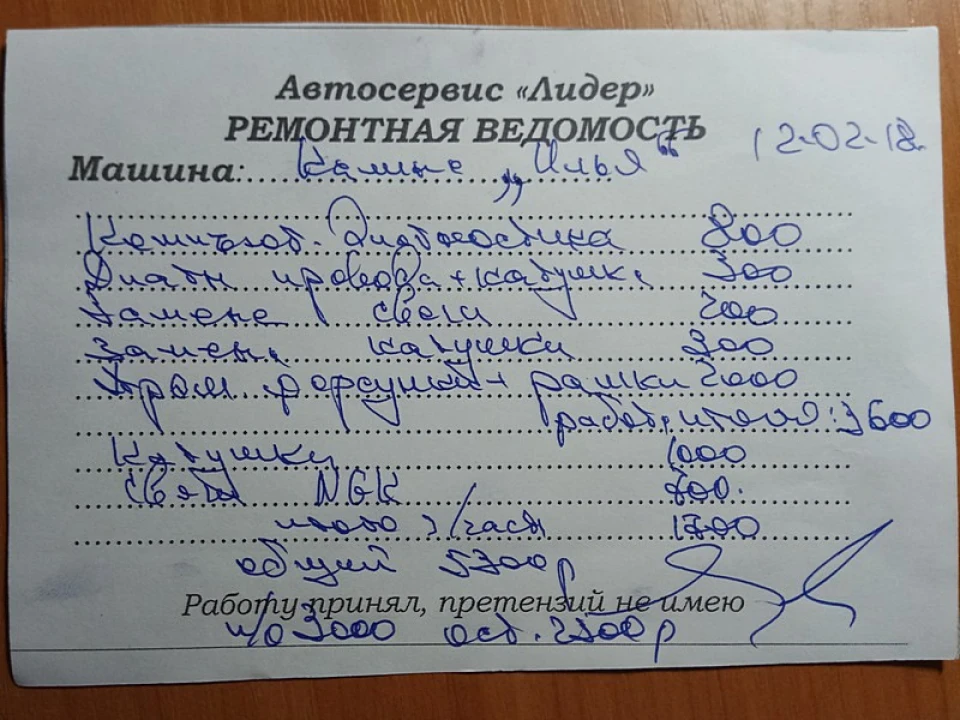 Автосервис «Лидер»
РЕМОНТНАЯ ВЕДОМОСТЬ 12-02-18.
Машина: „Илья“
Компьют. Диагностика 800
Диагн провода+катушк. 300
Замена свечи 200
Замен. катушки 300
Пром. форсунки + 2000
работ. итого: 3600
Катушки 1000
Свечи NGK 700.
итого з/част 1700
общий 5300р
Работу принял, претензий не имею
п/о 3000 ост. 2300р